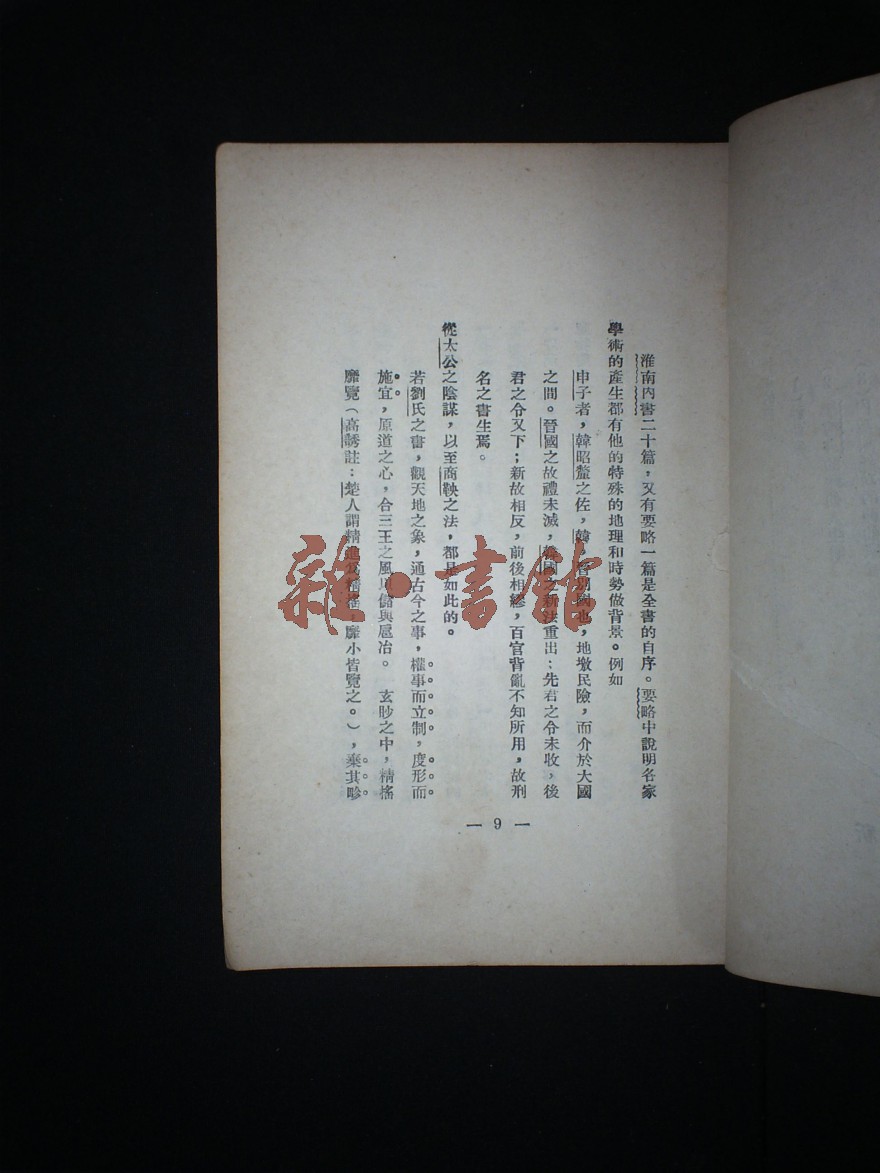 淮南內書二十篇，又有要略一篇是全書的自序。要略中說明各家
學術的產生都有他的特殊的地理和時勢做背景。例如
申子者，韓昭釐之佐，韓，晉別國也，地墽民險，而介於大國
之間。晉國之故禮未滅，韓國之新法重出；先君之令未收，後
君之令又下；新故相反，前後相繆，百官背亂不知所用，故刑
名之書生焉。
從太公之陰謀，以至商鞅之法，都是如此的。
若劉氏之書，觀天地之象，通古今之事，權事而立制，度形而
施宜，原道之心，合三王之風，以儲與扈冶。玄眇之中，精搖
靡覽（高誘註：楚人謂精進為精搖，靡小皆覽之。），棄其畛
— 9 —
雜·書館